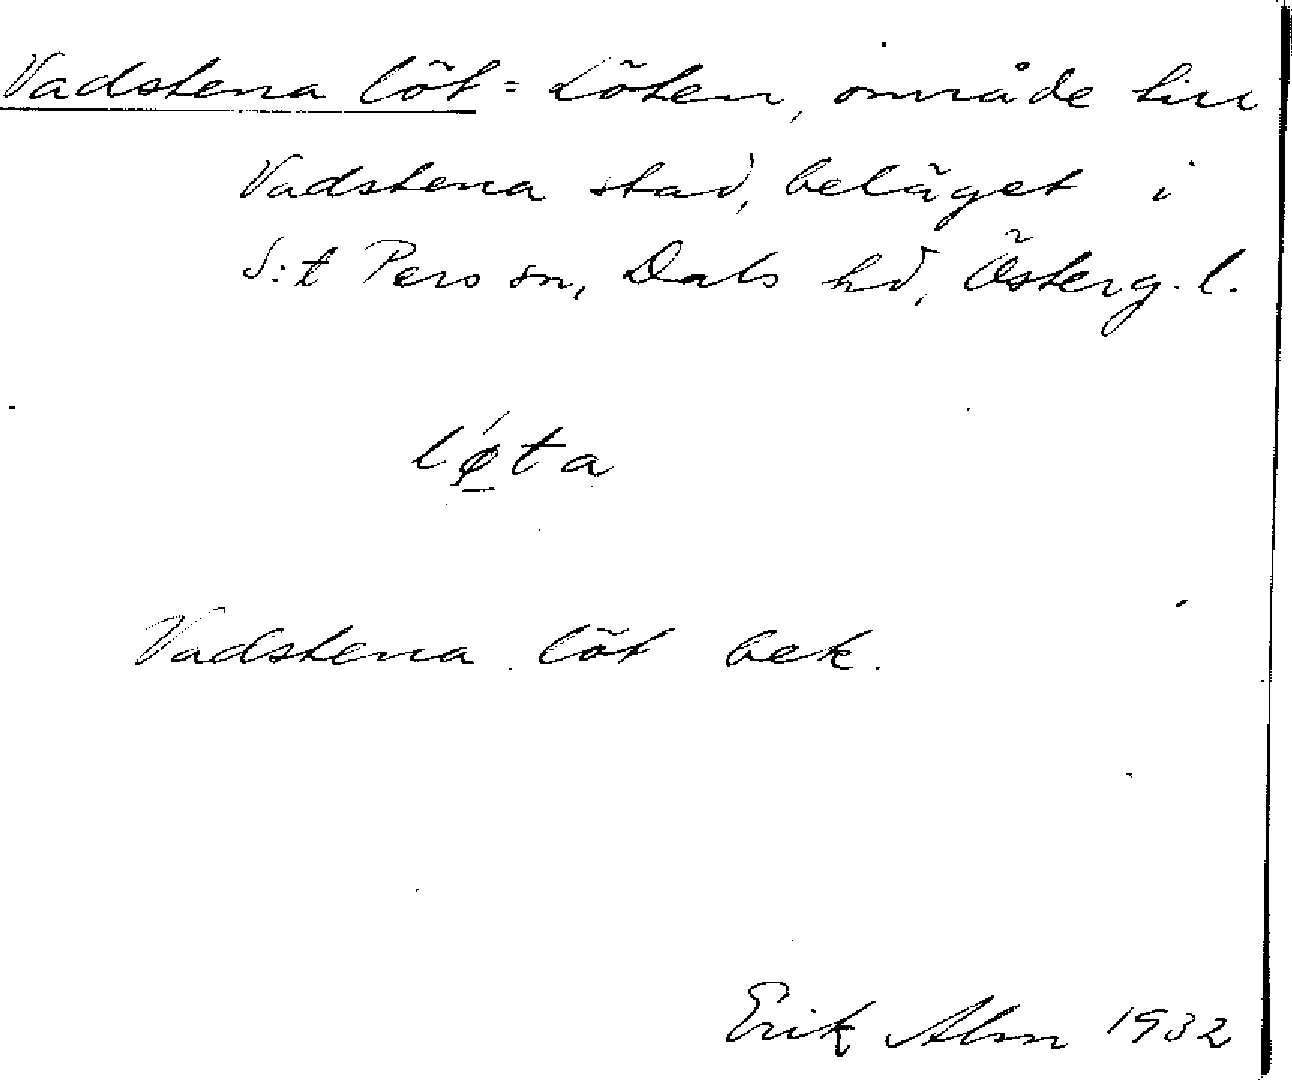 Vadstena löt = Löten, område till
Vadstena stad, beläget i
S:t Pers sn, Dals hd, Österg. l.
lǿ̱ta
Vadstena löt bek.
Erik Alm 1932